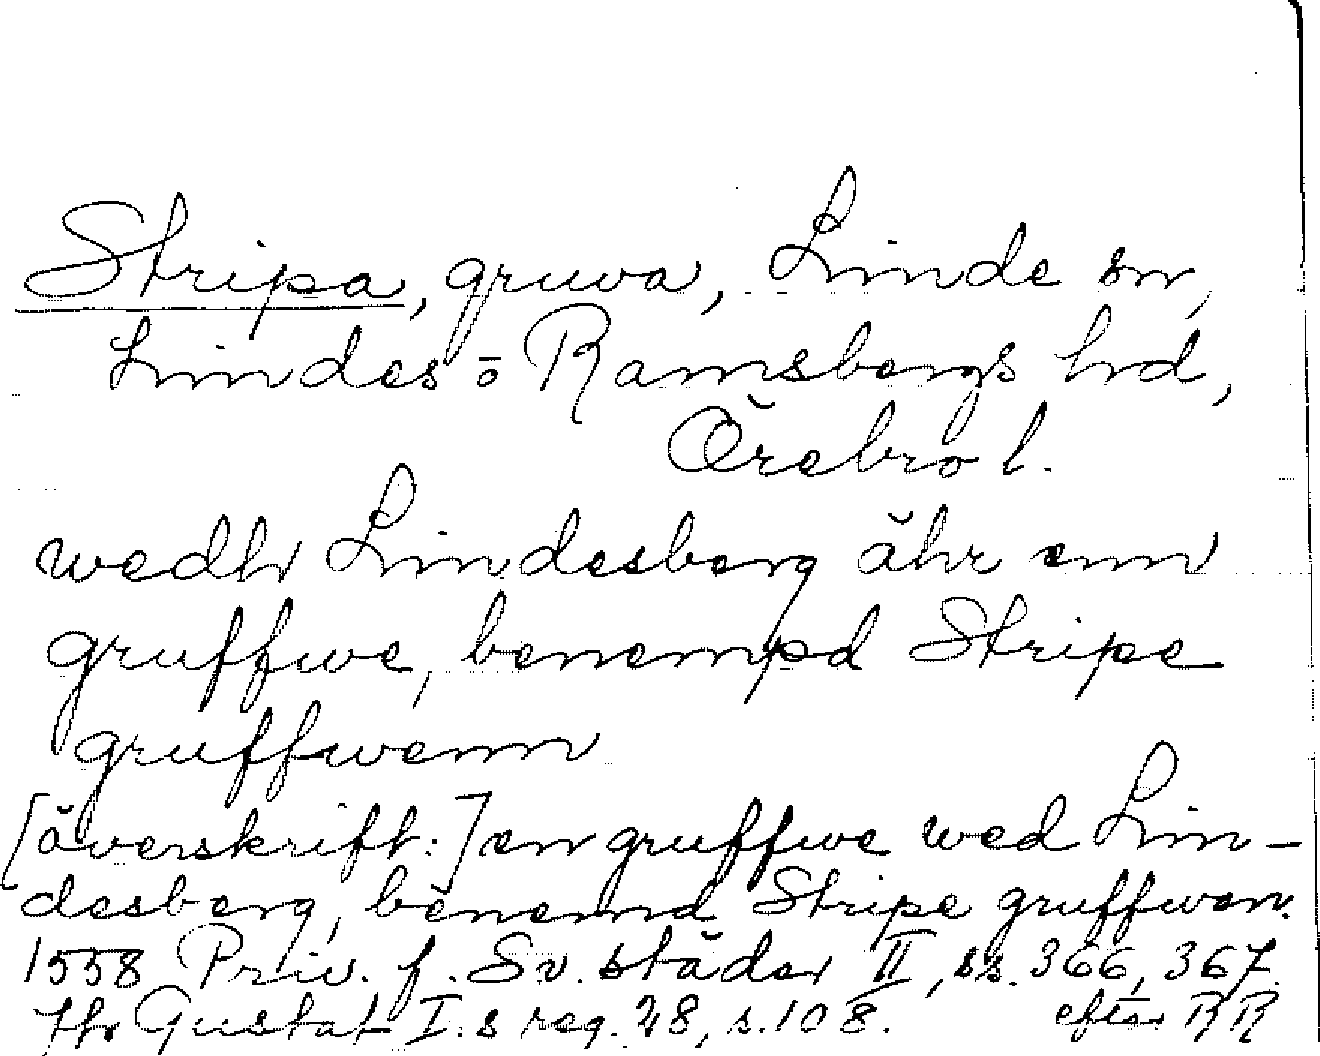 Stripa, gruva, Linde sn,
Lindes- o Ramsbergs hrd,
Örebro l.
wedhr Lindesberg ähr enn
gruffwe, benempd Stripe
gruffwenn
[överskrift:] en gruffwe wed Lin-
desberg, benemd Stripe gruffwen.
1558 Priv. f. Sv. städer II, ss. 366, 367.
Gustaf I.s reg. 28, s. 108. efter RR